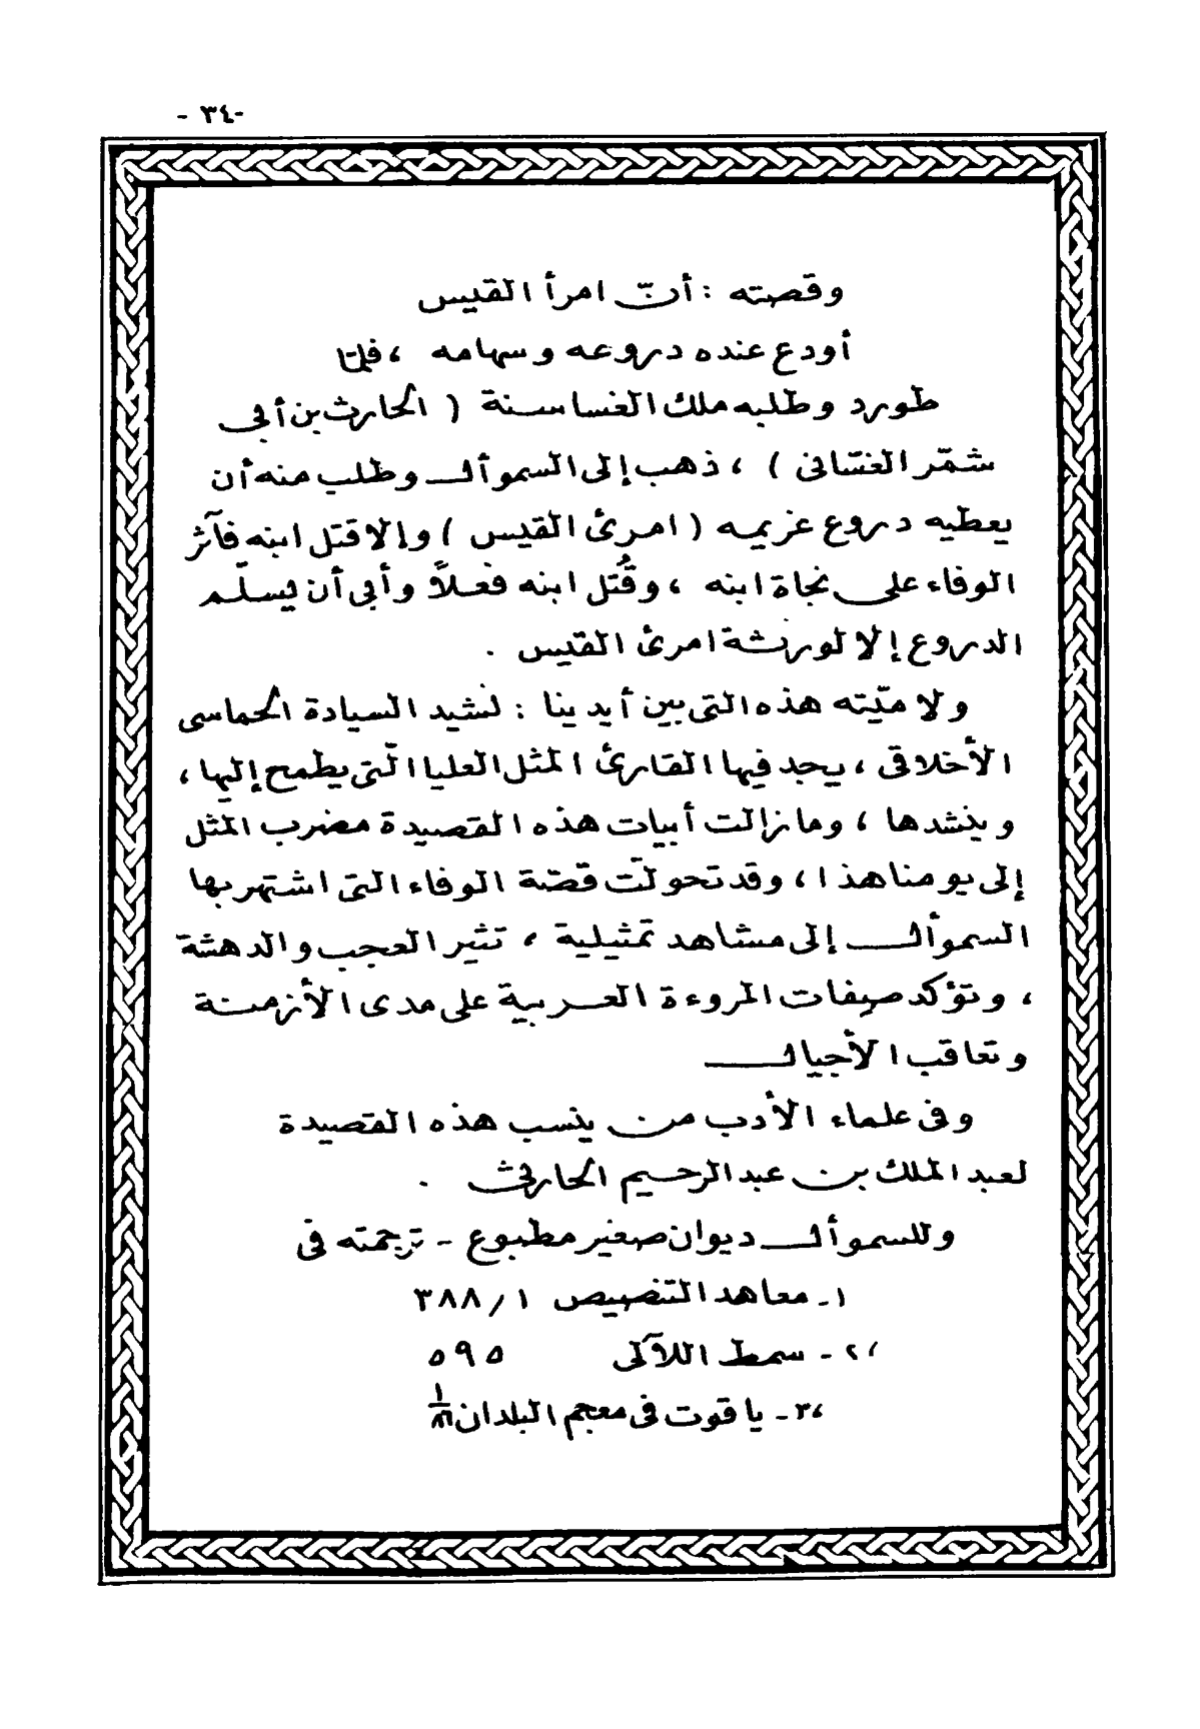 - ٣٤-
وقصته : أنّ امرأ القيس
أودع عنده دروعه وسهامه ، فلمّا
طورد وطلبه ملك الغساسنة ( الحارث بن أبي
شمّر الغسّانى ) ، ذهب إلى السموأل وطلب منه أن
يعطيه دروع غريمه ( امرئ القيس ) وإلا قتل ابنه فآثر
الوفاء على نجاة ابنه ، وقُتل ابنه فعلاً وأبى أن يسلّم
الدروع إلا لورثة امرئ القيس .
ولاميّته هذه التى بين أيدينا : نشيد السيادة الحماسى
الأخلاقى ، يجد فيها القارئ المثل العليا الّتى يطمح إليها ،
وينشدها ، ومازالت أبيات هذه القصيدة مضرب المثل
إلى يومنا هذا ، وقد تحولّت قصّة الوفاء التى اشتهر بها
السموأل إلى مشاهد تمثيلية ، تثير العجب والدهشة
، وتؤكد صفات المروءة العربية على مدى الأزمنة
وتعاقب الأجيال
وفى علماء الأدب من ينسب هذه القصيدة
لعبد الملك بن عبد الرحيم الحارثى .
وللسموأل ديوان صغير مطبوع - ترجمته فى
١- معاهد التنصيص ١ / ٣٨٨
،٢ - سمط اللآلى ٥٩٥
،٣ - ياقوت فى معجم البلدان